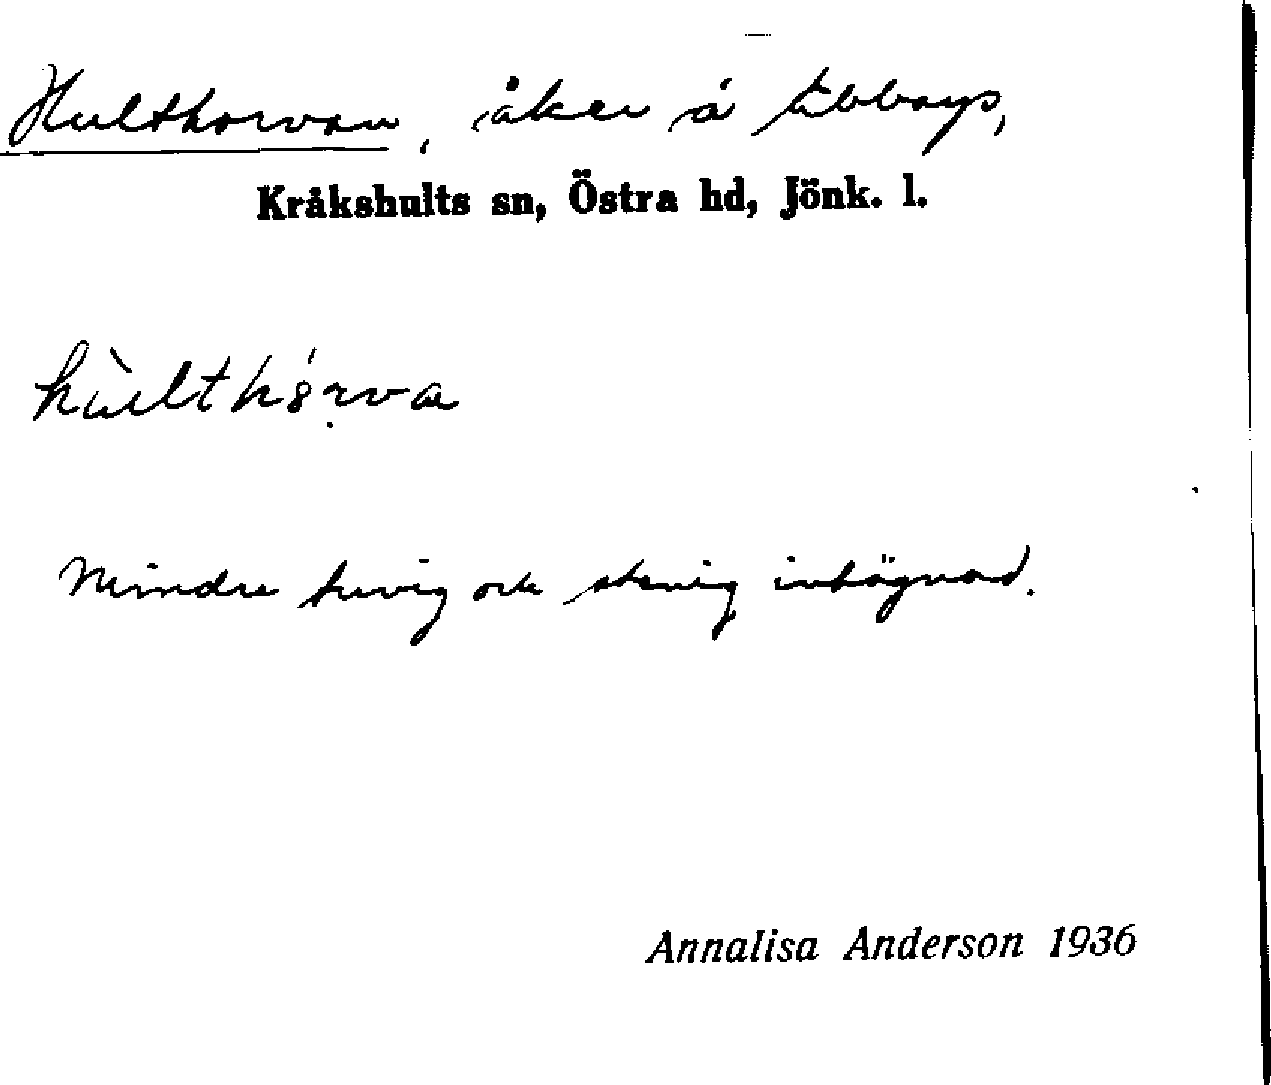 Hulthorvan, åker å Ubbarp,
Kråkshults sn, Östra hd, Jönk. l.
hùlthórva
Mindre och stenig inhägnad.
Annalisa Anderson 1936